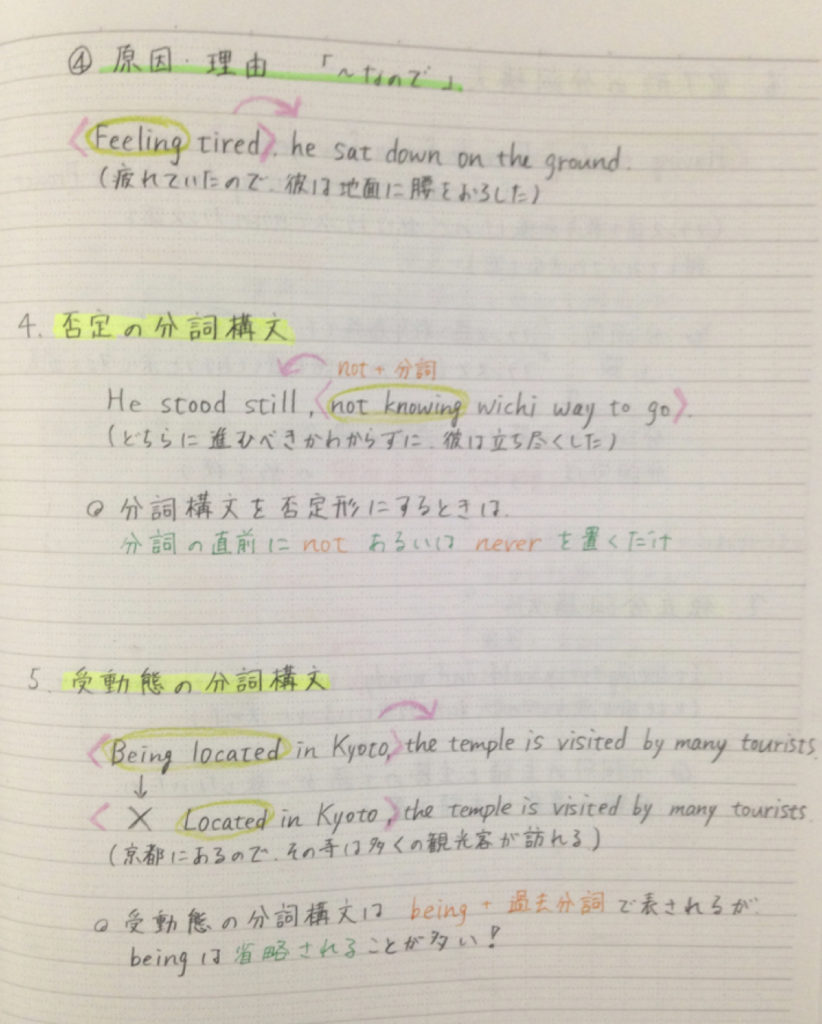 ④ 原因・理由 「〜なので」.
〈Feeling tired〉, he sat down on the ground.
(疲れていたので、彼は地面に腰をおろした)
4. 否定の分詞構文
not + 分詞
He stood still, 〈not knowing wichi way to go〉.
(どちらに進むべきかわからずに、彼は立ち尽くした)
○ 分詞構文を否定形にするときは、
分詞の直前に not あるいは never を置くだけ
5. 受動態の分詞構文
〈Being located in Kyoto,〉the temple is visited by many tourists.
↓
〈 × Located in Kyoto,〉the temple is visited by many tourists.
(京都にあるので、その寺は多くの観光客が訪れる)
○ 受動態の分詞構文は being + 過去分詞 で表されるが、
being は省略されることが多い!